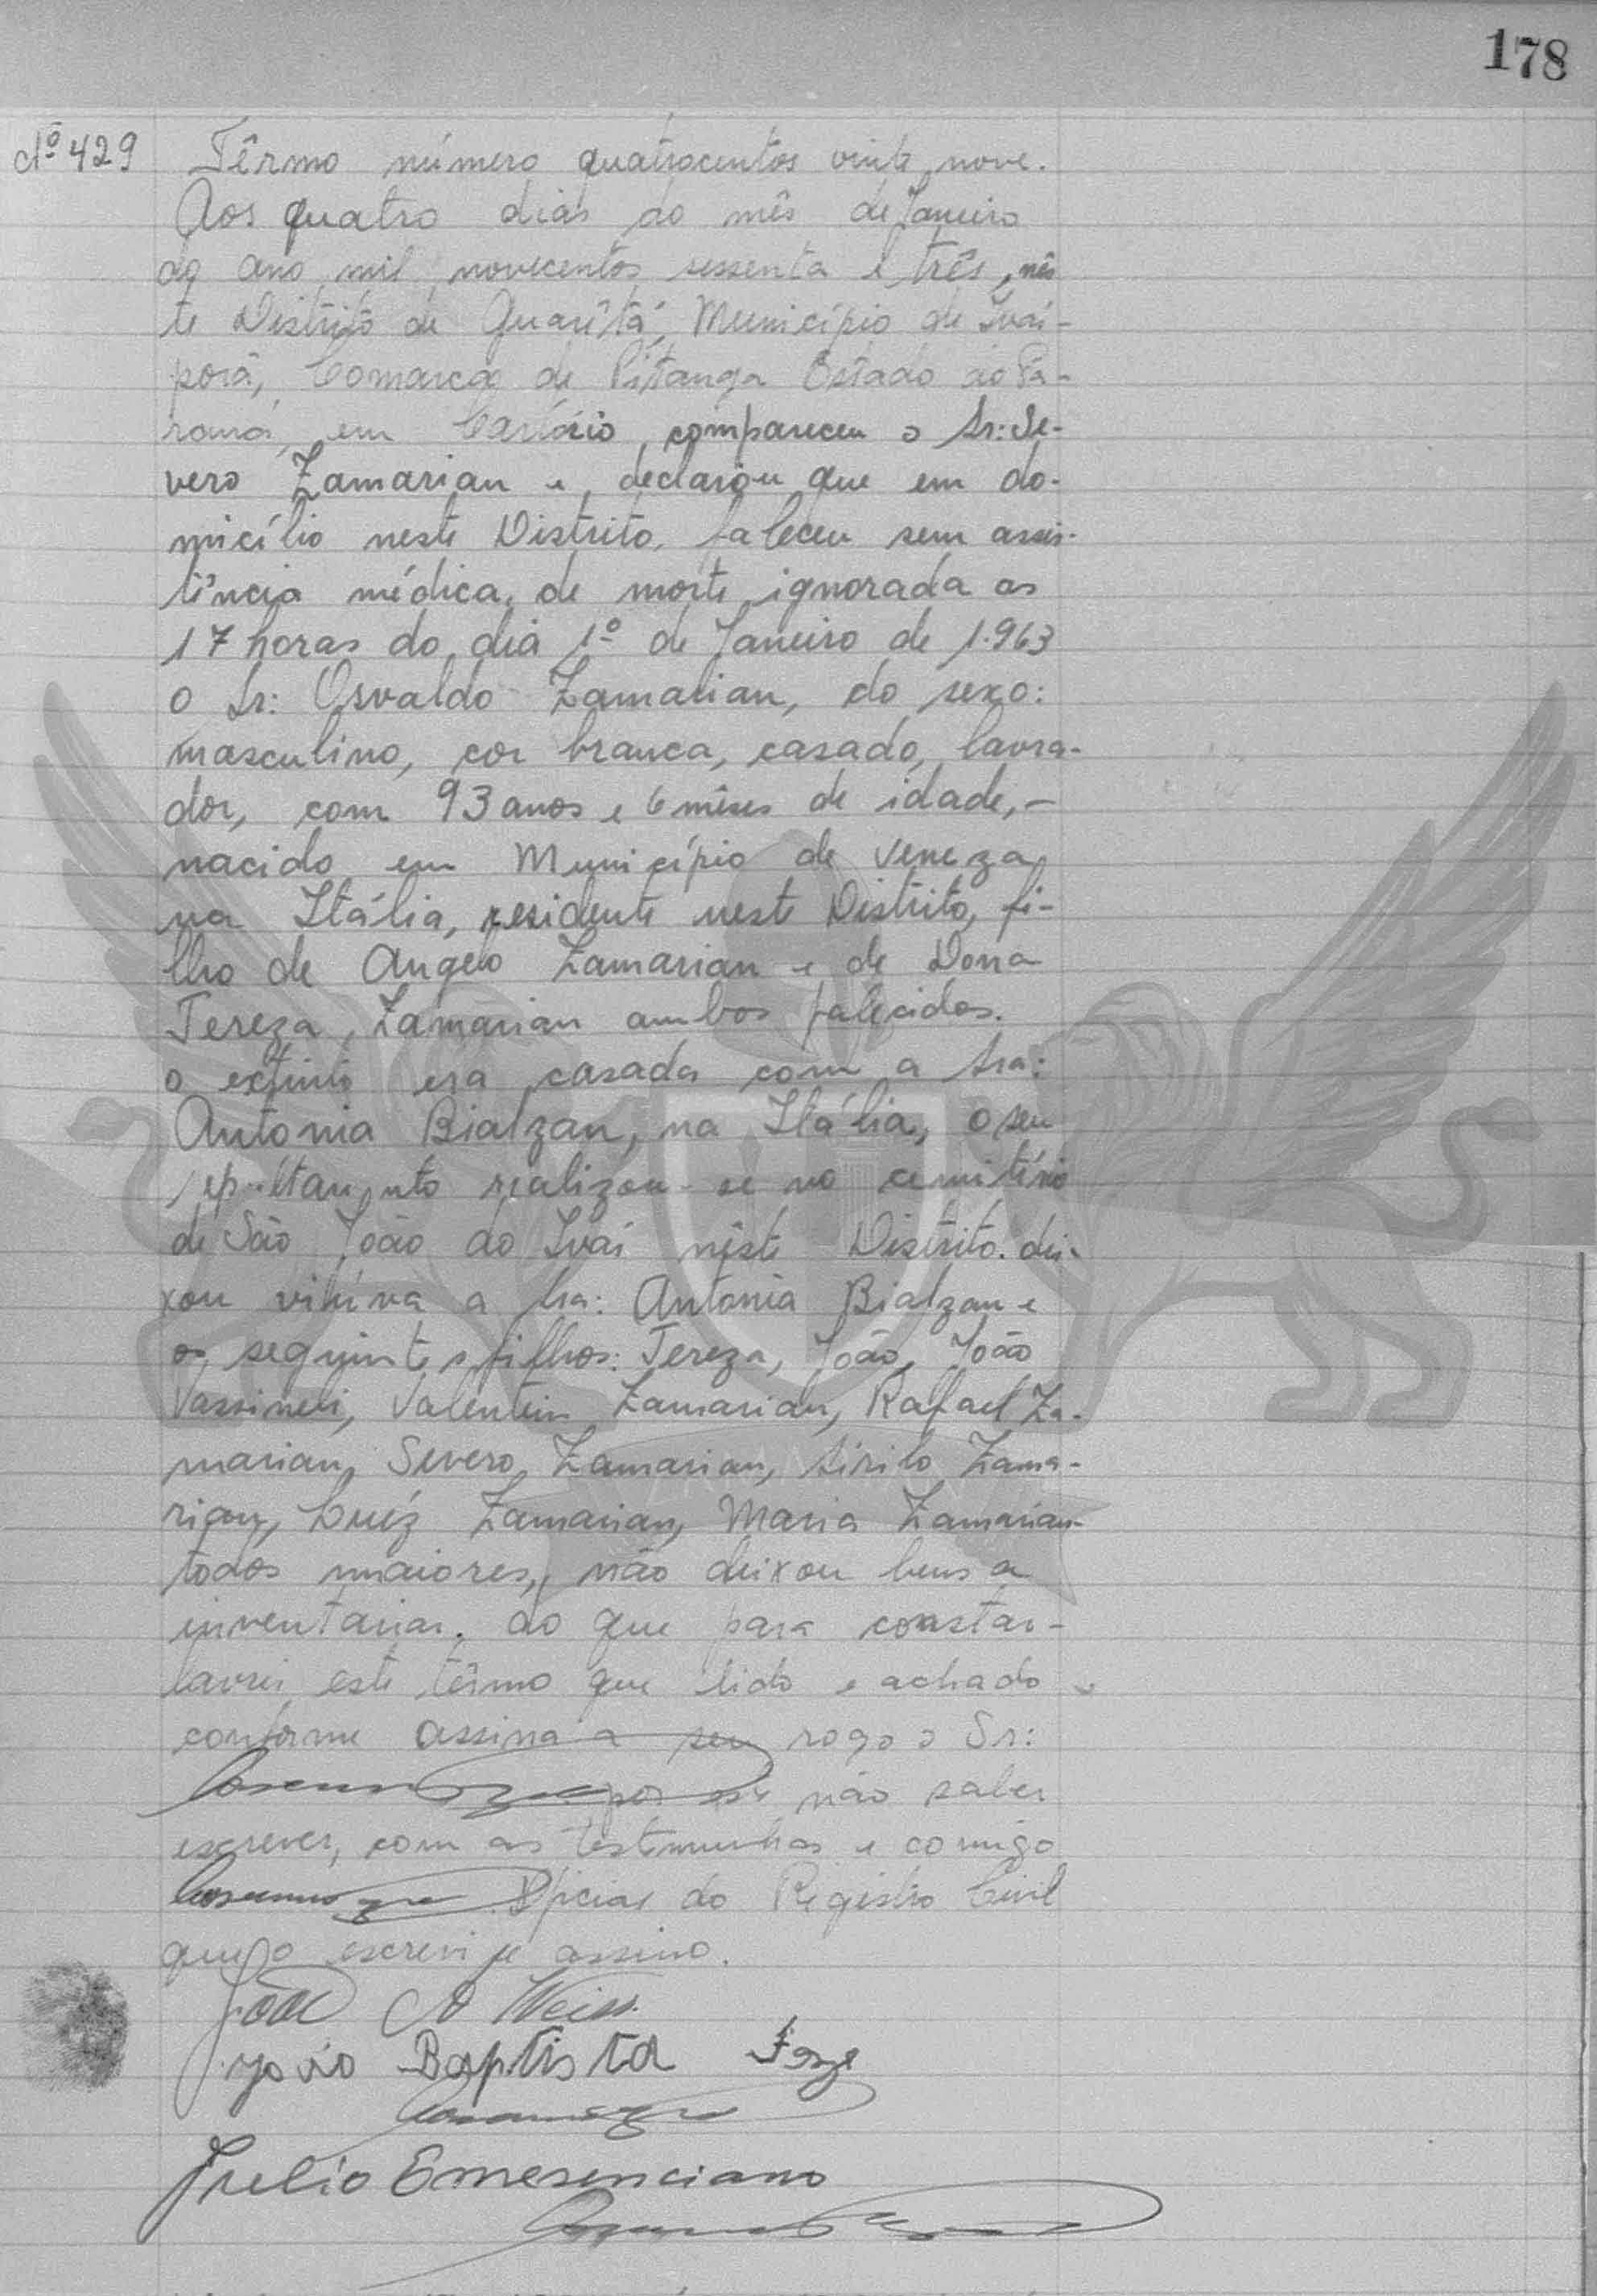 178
Nº 429 Têrmo número quatrocentos vinte nove.
Aos quatro dias do mês de Janeiro
do ano mil novecentos sessenta e três, nês
te Distrito de Guaritá, Município de Ivai-
porã, Comarca de Pitanga Estado do Pa-
raná, em Cartório, compareceu o Sr: Se-
vero Zamarian e, declarou que em do-
micílio neste Distrito, faleceu sem assis-
tência médica, de morte ignorada as
17 horas do dia 1º de Janeiro de 1.963
o Sr: Osvaldo Zamarian, do sexo:
masculino, cor branca, casado, lavra-
dor, com 93 anos e 6 mêses de idade,-
nacido em Município de Veneza
na Itália, residente neste Distrito, fi-
lho de Angelo Zamarian e de Dona
Tereza Zamarian ambos falecidos.
o extinto era casada com a Sra:
Antonia Bialzan, na Itália, o seu
sepultamento realizou-se no cemitério
de São João do Ivaí nêste Distrito. dei-
xou viúva a Sra: Antonia Bialzan e
os seguintes filhos: Tereza, João, João
Vassineli, Valentin Zamarian, Rafael Za-
marian, Severo Zamarian, Sirilo Zama-
rian, Luiz Zamarian, Maria Zamarian-
todos maiores, não deixou bens a
inventariar. do que para constar-
lavrei este têrmo que lido e achado
conforme assina a seu rogo o Sr:
por este não saber
escrever, com as testemunhas e comigo
Oficial do Registro Civil
que o escrevi e assino.
José A Weiss.
João Baptista
Julio Emerenciano